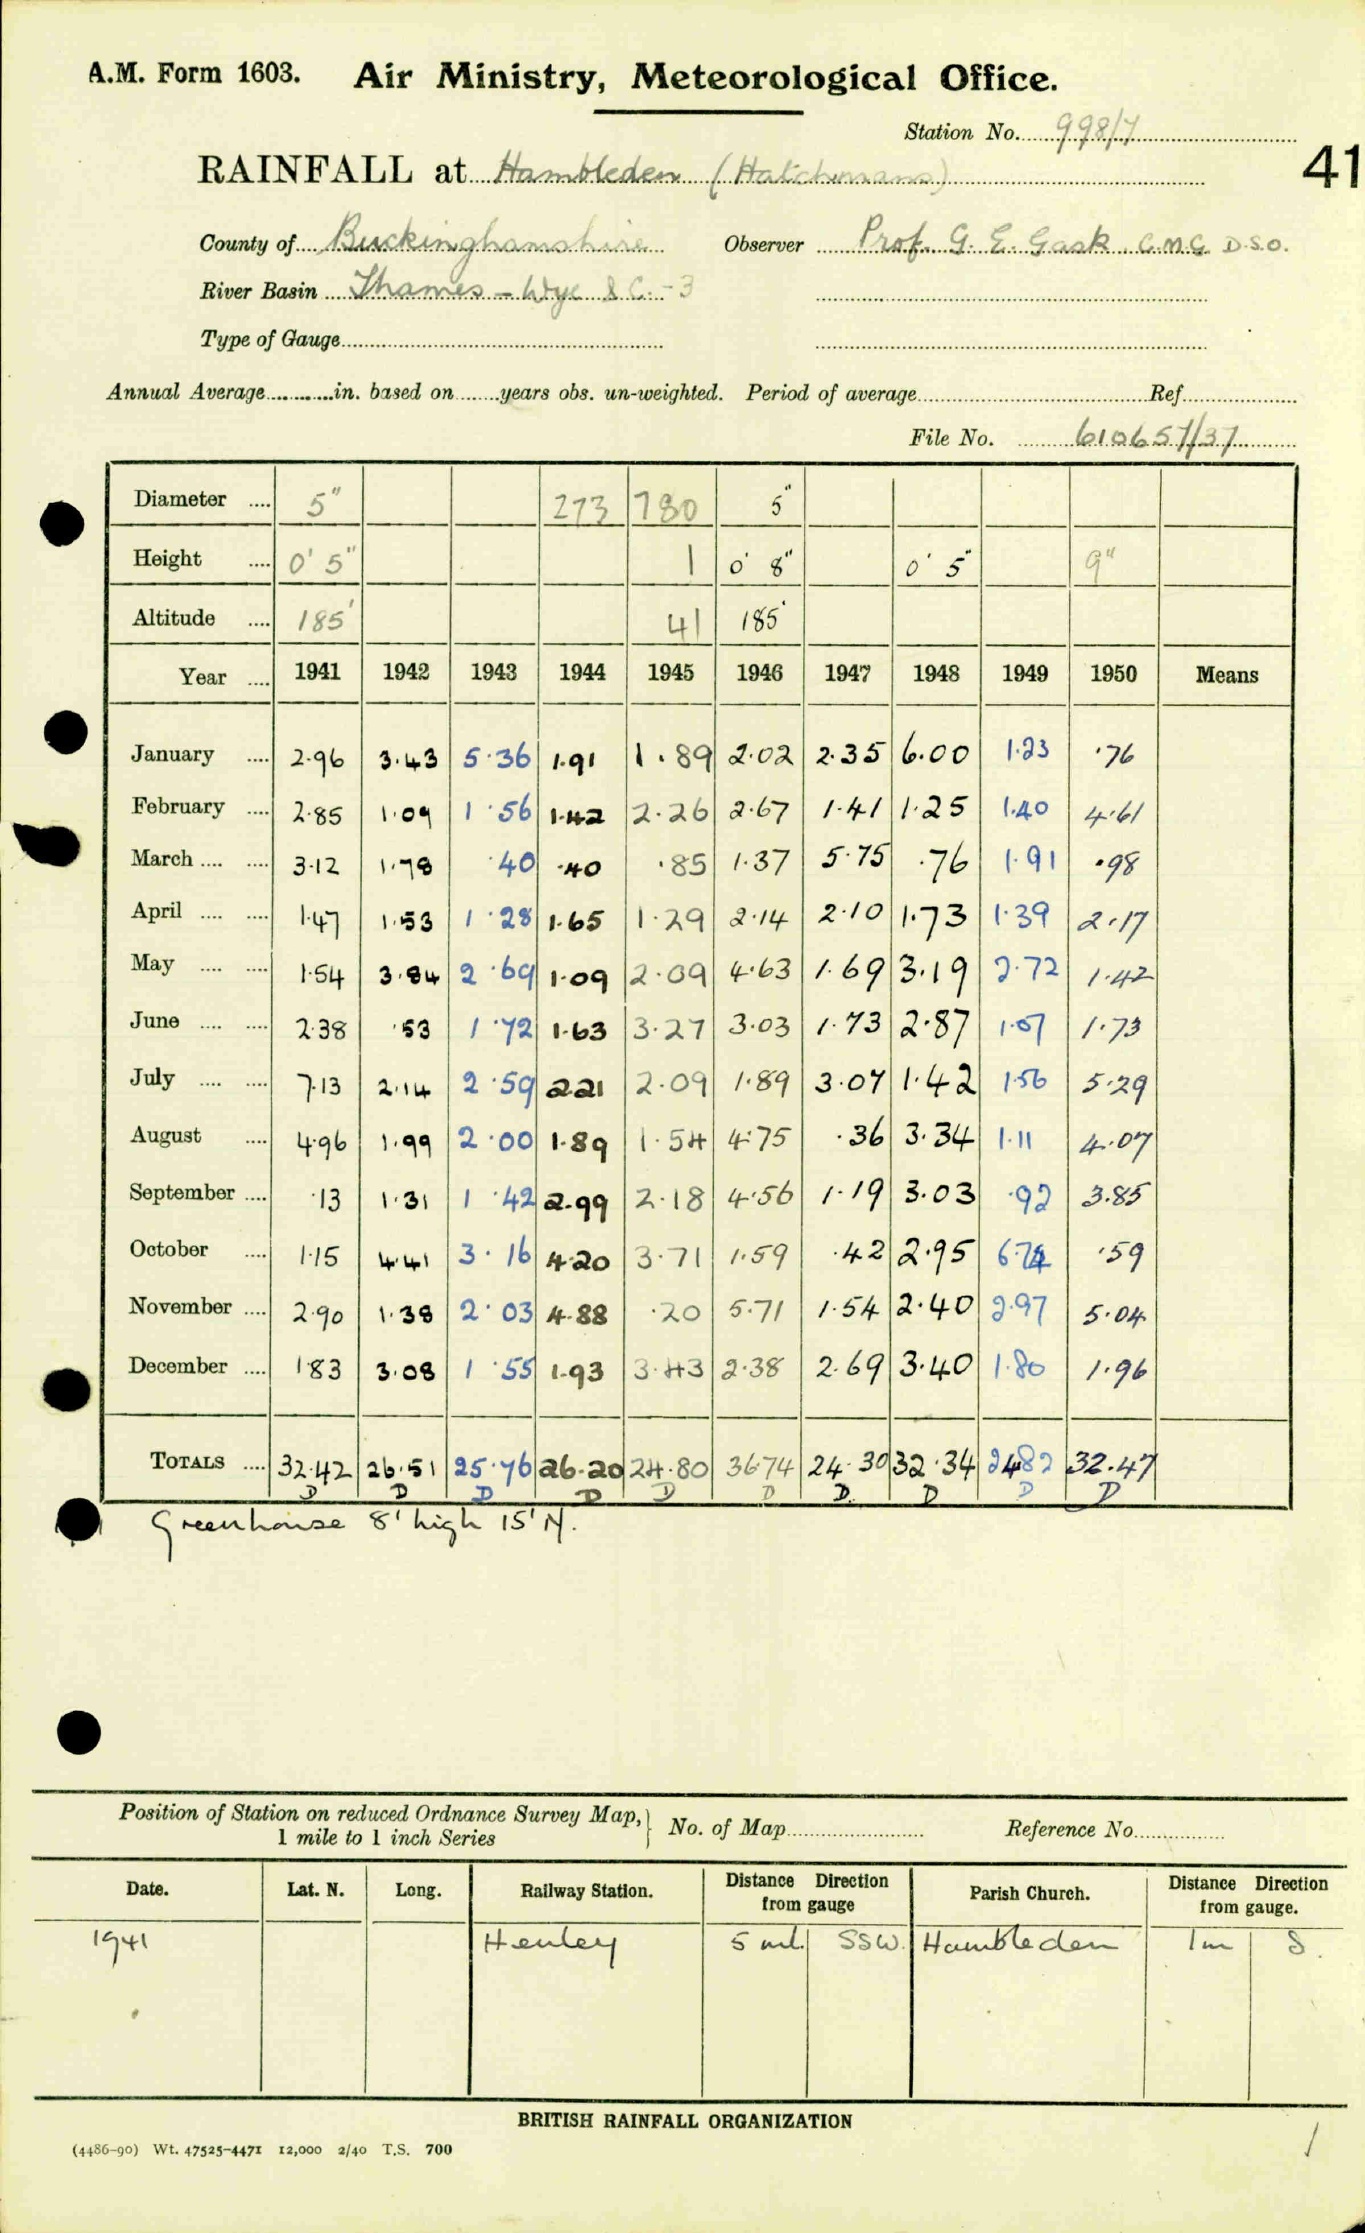 A.M. Form 1603. Air Ministry, Meteorological Office.
Station No. 998/7
RAINFALL at Hambleden (Hatchmans)
41
County of Buckinghamshire Observer Prof. G. E. Gask C.M.G. D.S.O.
River Basin Thames - Wye & C. - 3
Type of Gauge
Annual Average in. based on years obs. un-weighted. Period of average Ref.
File No. 610657/37
Diameter 5" 273 780 5"
Height 0' 5" 1 0' 8" 0' 5" 9"
Altitude 185' 41 185'
Year 1941 1942 1943 1944 1945 1946 1947 1948 1949 1950 Means
January 2.96 3.43 5.36 1.91 1.89 2.02 2.35 6.00 1.23 .76
February 2.85 1.09 1.56 1.42 2.26 2.67 1.41 1.25 1.40 4.61
March 3.12 1.78 .40 .40 .85 1.37 5.75 .76 1.91 .98
April 1.47 1.53 1.28 1.65 1.29 2.14 2.10 1.73 1.39 2.17
May 1.54 3.84 2.69 1.09 2.09 4.63 1.69 3.19 2.72 1.42
June 2.38 .53 1.72 1.63 3.27 3.03 1.73 2.87 1.07 1.73
July 7.13 2.14 2.59 2.21 2.09 1.89 3.07 1.42 1.56 5.29
August 4.96 1.99 2.00 1.89 1.54 4.75 .36 3.34 1.11 4.07
September .13 1.31 1.42 2.99 2.18 4.56 1.19 3.03 .92 3.85
October 1.15 4.41 3.16 4.20 3.71 1.59 .42 2.95 6.74 .59
November 2.90 1.38 2.03 4.88 .20 5.71 1.54 2.40 2.97 5.04
December 1.83 3.08 1.55 1.93 3.43 2.38 2.69 3.40 1.80 1.96
TOTALS 32.42 26.51 25.76 26.20 24.80 36.74 24.30 32.34 24.82 32.47
D D D D D D D D D D
Greenhouse 8' high 15' N.
Position of Station on reduced Ordnance Survey Map, 1 mile to 1 inch Series } No. of Map Reference No.
Date. Lat. N. Long. Railway Station. Distance Direction from gauge Parish Church. Distance Direction from gauge.
1941 Henley 5 ml. SSW. Hambleden 1m S.
BRITISH RAINFALL ORGANIZATION
(4486-90) Wt. 47525-4471 12,000 2/40 T.S. 700
1